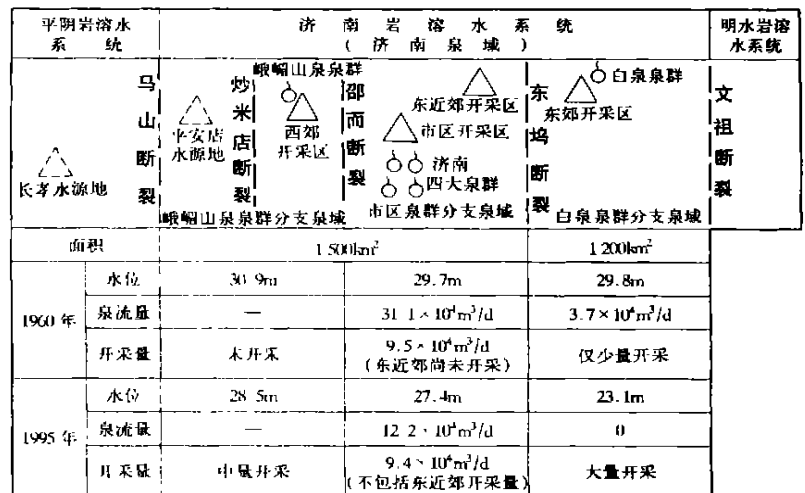 平阴岩溶水
系 统
济 南 岩 溶 水 系 统
( 济 南 泉 域 )
明水岩溶
水系统
马山断裂
长孝水源地
炒米店断裂
平安店
水源地
峨嵋山泉泉群
西郊
开采区
邵而断裂
东近郊开采区
市区开采区
济南
四大泉群
东坞断裂
白泉泉群
东郊开采区
文祖断裂
峨嵋山泉泉群分支泉域
市区泉群分支泉域
白泉泉群分支泉域
面积 1 500km² 1 200km²
1960 年
水位 30.9m 29.7m 29.8m
泉流量 — 31.1×10⁴m³/d 3.7×10⁴m³/d
开采量 未开采 9.5×10⁴m³/d
(东近郊尚未开采) 仅少量开采
1995 年
水位 28.5m 27.4m 23.1m
泉流量 — 12.2×10⁴m³/d 0
开采量 中量开采 9.4×10⁴m³/d
(不包括东近郊开采量) 大量开采